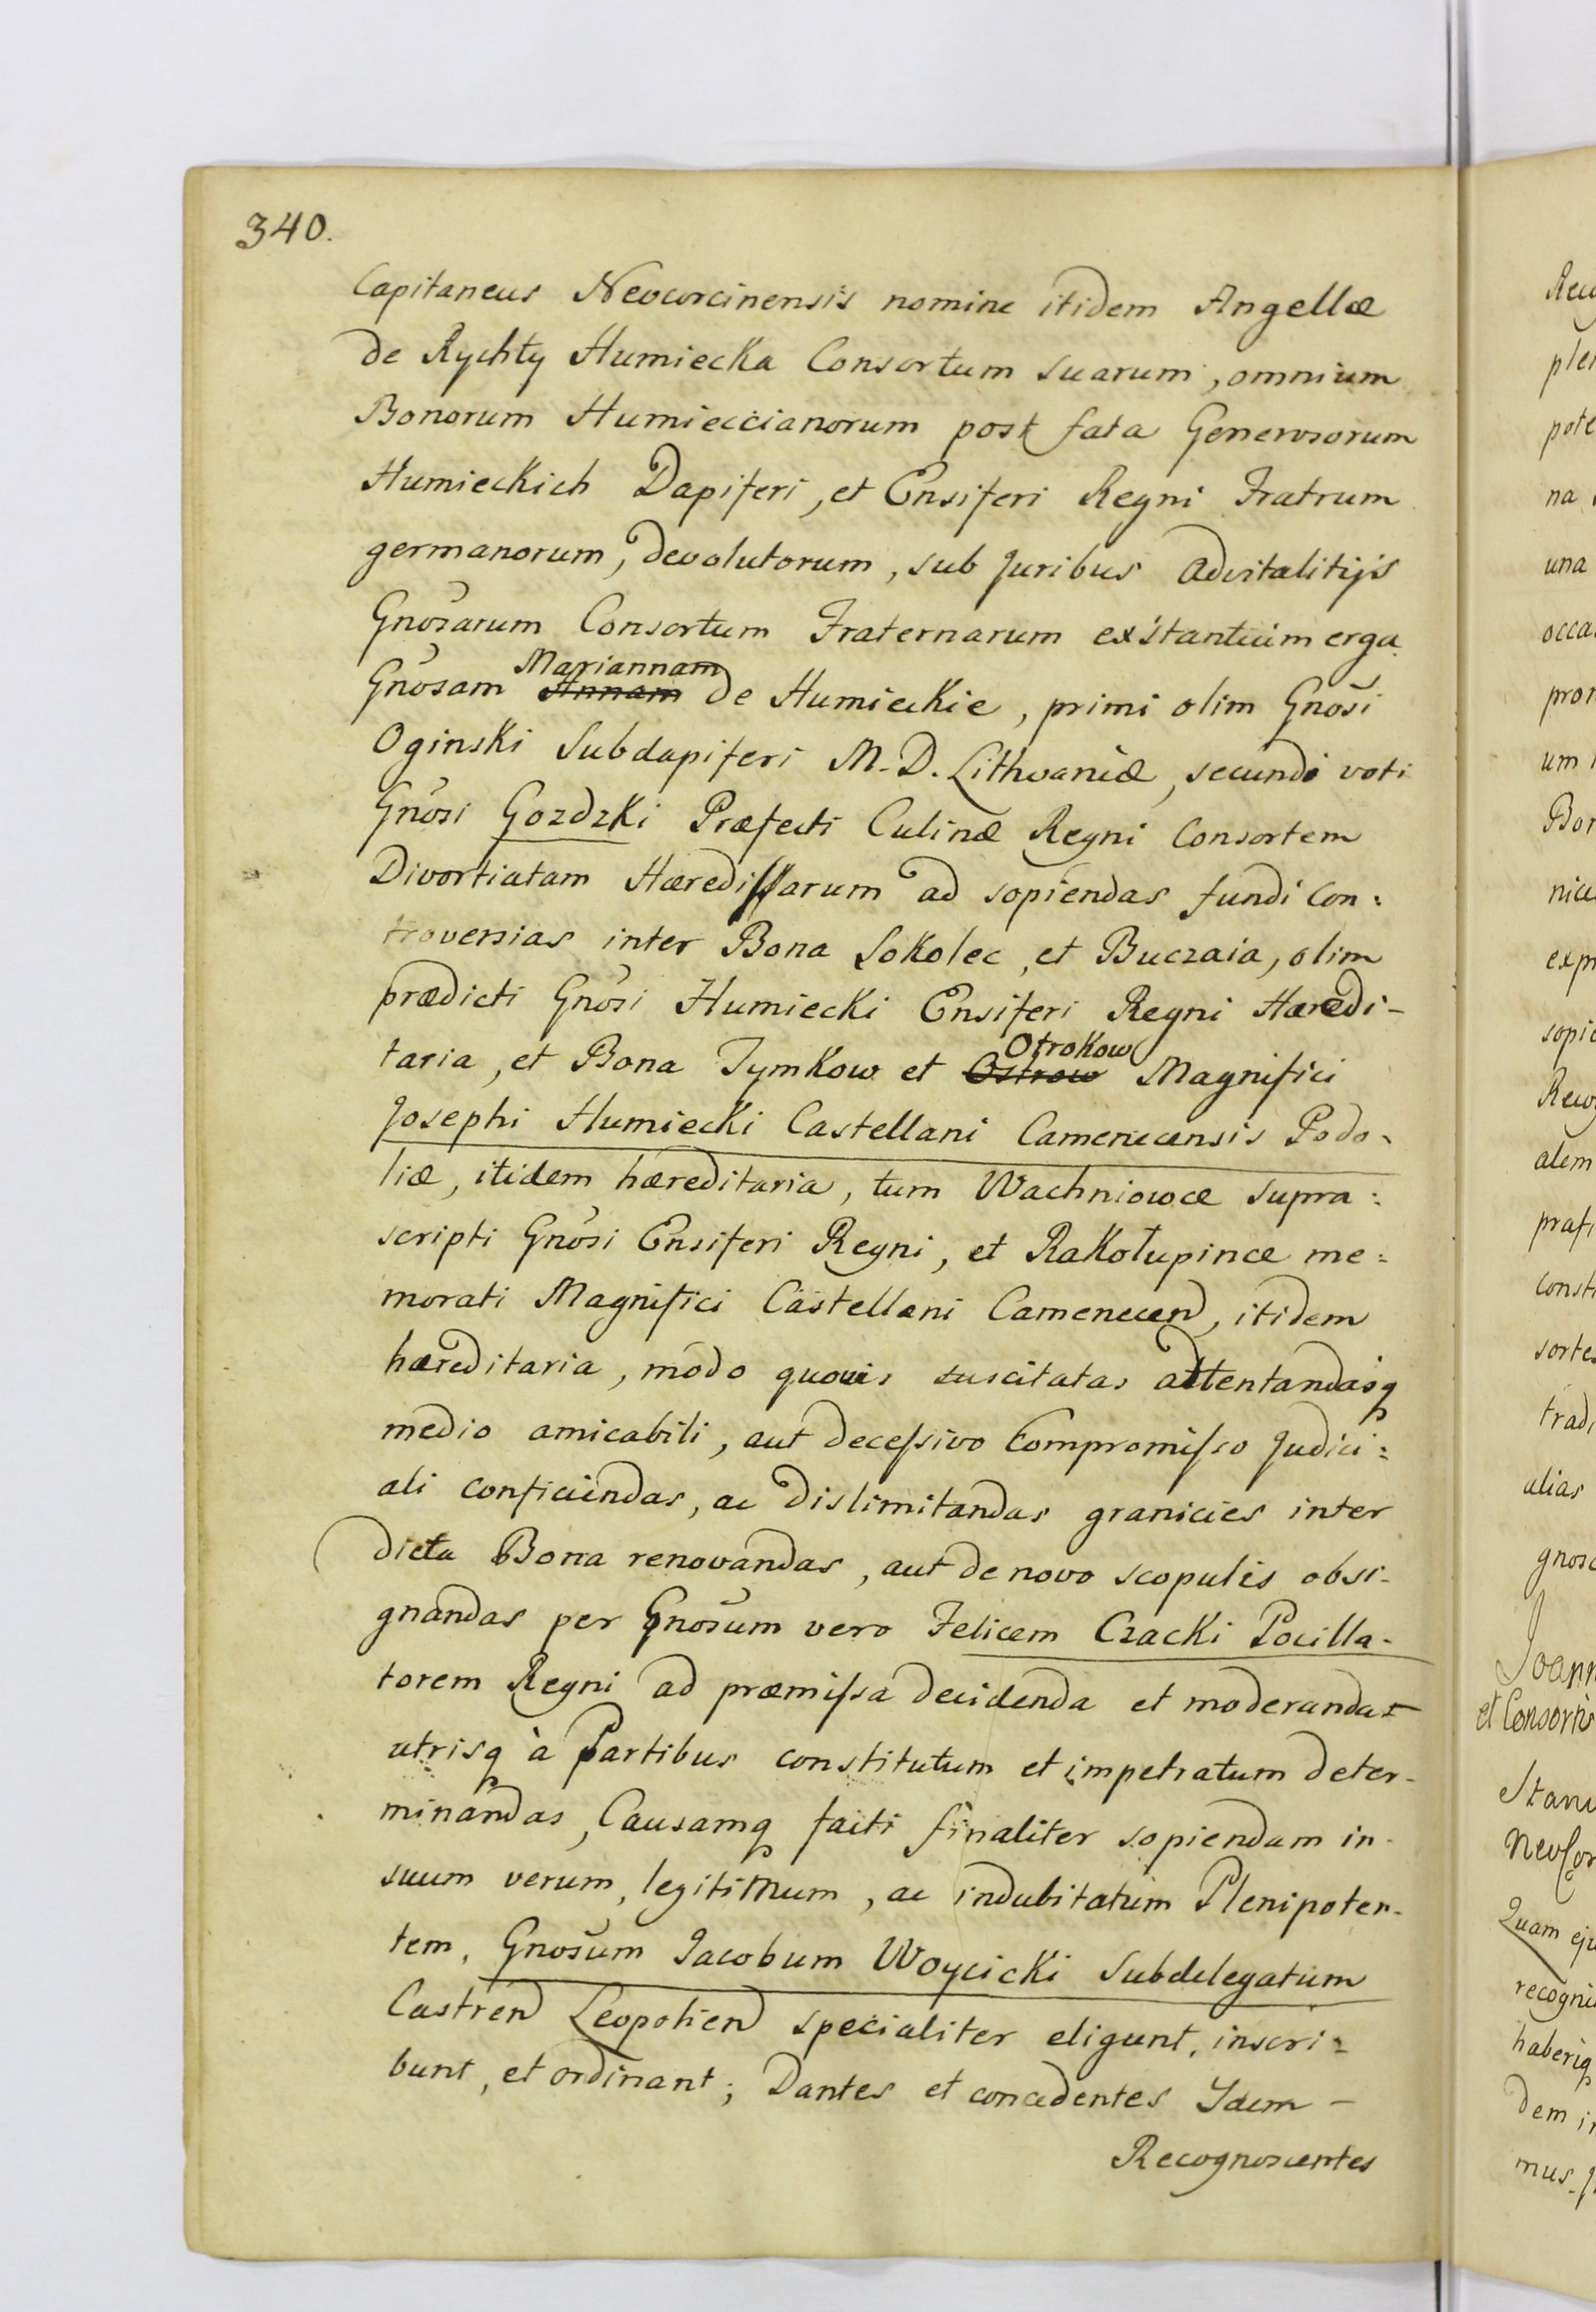 340.
Capitaneus Neocorcinensis nomine itidem Angellæ
de Rychty Humiecka Consortum suarum, omnium
Bonorum Humieccianorum post fata Generosorum
Humieckich Dapiferi, et Ensiferi Regni Fratrum
germanorum, devolutorum, sub Juribus Advitalitijs
Gnosarum Consortum Fraternarum existantium erga
Mariannam
Gnosam Annam de Humieckie, primi olim Gnosi
Oginski Subdapiferi M. D. Lithvaniæ, secundi voti
Gnosi Gozdzki Præfecti Culinæ Regni Consortem
Divortiatam Hæredissarum ad sopiendas fundi Con:
troversias inter Bona Sokolec, et Buczaia, olim
prædicti Gnosi Humiecki Ensiferi Regni Hæredi-
Otrokow
taria, et Bona Tymkow et Ostrow Magnifici
Josephi Humiecki Castellani Camenecensis Podo-
liæ, itidem hæreditaria, tum Wachniowce supra:
scripti Gnosi Ensiferi Regni, et Rakołupince me=
morati Magnifici Castellani Camenecen, itidem
hæreditaria, modo quovis suscitatas attentandasq
medio amicabili, aut decessivo Compromisso Judici=
ali conficiendas, ac dislimitandas granicies inter
dicta Bona renovandas, aut de novo scopulis obsi-
gnandas per Gnosum vero Felicem Czacki Pocilla-
torem Regni ad præmissa decidenda et moderanda
utrisq à Partibus constitutum et impetratum deter-
minandas, Causamq facti finaliter sopiendam in-
suum verum, legitimum, ac indubitatum Plenipoten-
tem, Gnosum Jacobum Woycicki Subdelegatum
Castren Leopolien specialiter eligunt, inscri=
bunt, et ordinant; Dantes et concedentes Idem -
Recognoscentes